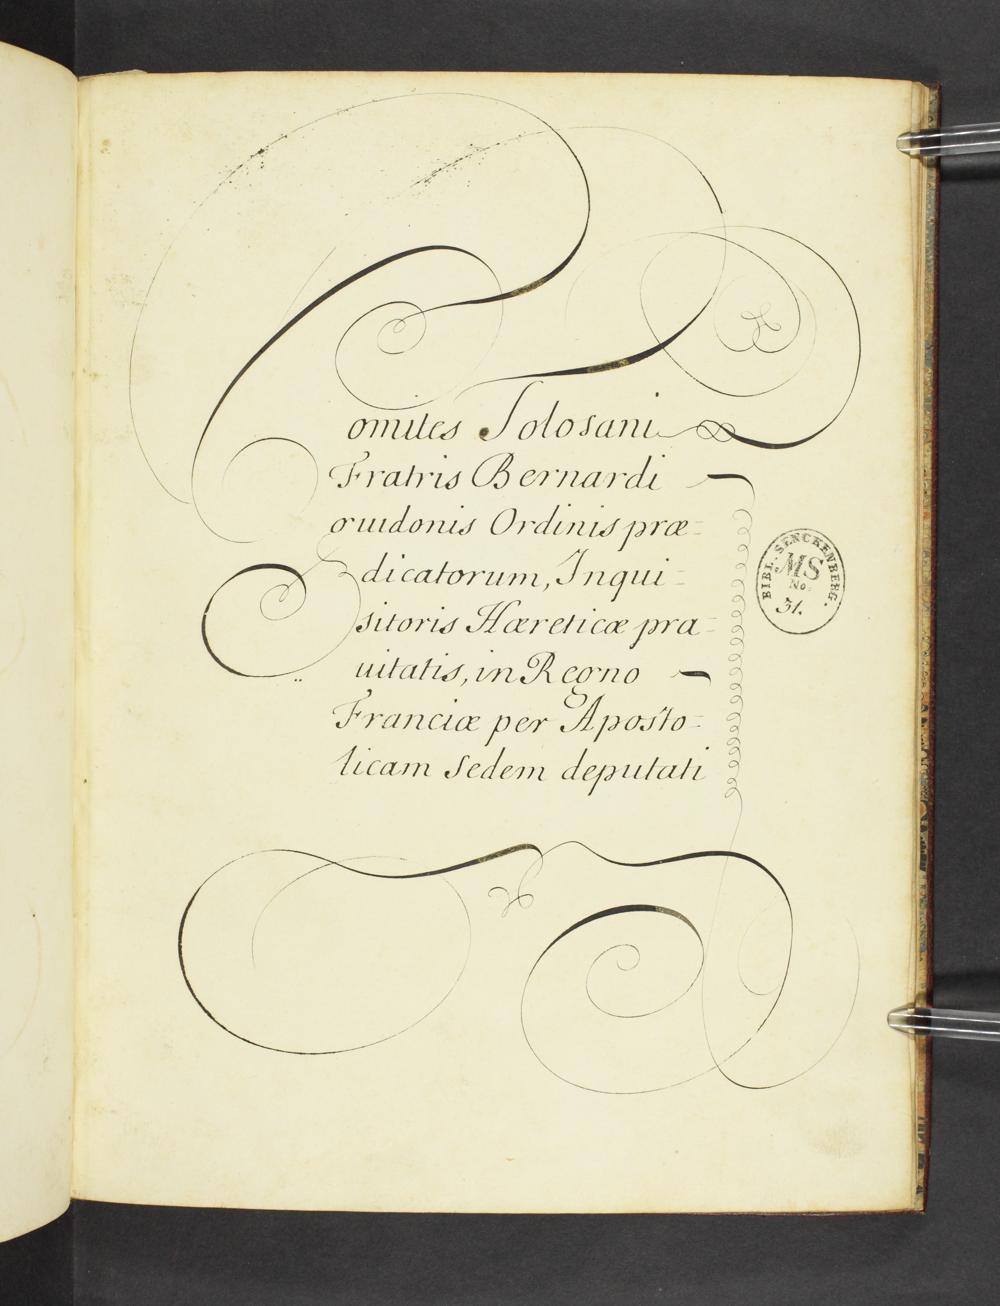 Comites Tolosani
Fratris Bernardi
guidonis Ordinis præ=
dicatorum, Inqui=
sitoris Hæreticæ pra=
uitatis, in Regno
Franciæ per Aposto=
licam Sedem deputati
BIBL. SENCKENBERG.
MS
No.
31.